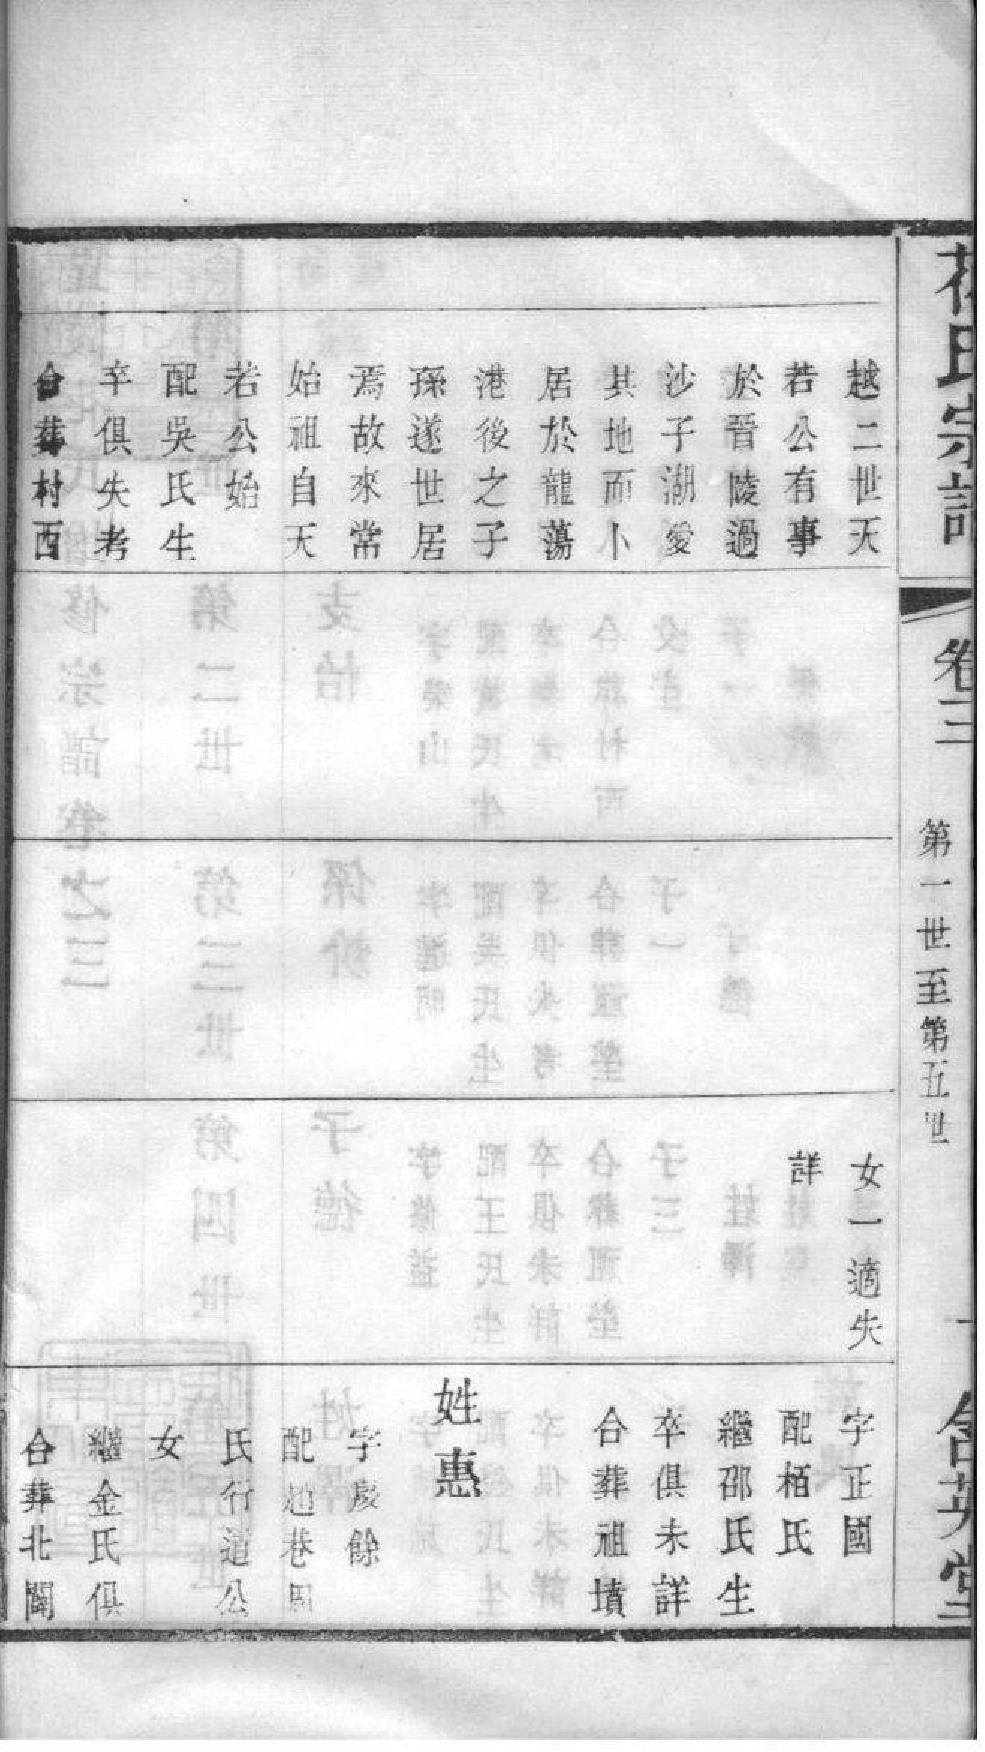 氏宗譜
卷三
第一世至第五世
含英堂
越二世天
若公有事
於晉陵過
沙子湖愛
其地而卜
居於龍蕩
港後之子
孫遂世居
焉故來常
始祖自天
若公始
配吳氏生
卒俱失考
合葬村西
女一適失
詳
字正國
配栢氏
繼邵氏生
卒俱未詳
合葬祖墳
姓惠
字慶餘
配趙巷周
氏行道公
女
繼金氏俱
合葬北闈